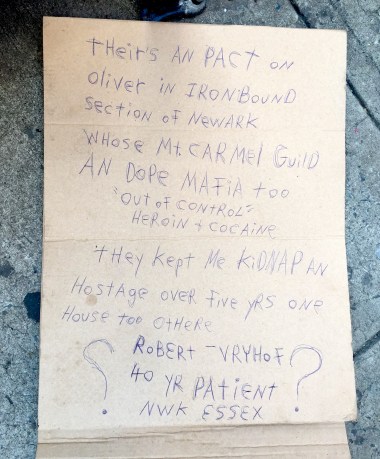 tHeir's AN PACT ON
Oliver in IRONBOUND
Section of NewARK
WHOSE Mt. CARMel Guild
AN DOPE MAFiA too
"OUT OF CONTROL"
HEROiN + COCAiNE
tHey Kept Me KiDNAP AN
HOStAGE OVER Five YRS ONE
HOUSE TOO OtHeRe
? ROBERt - VRYHOF ?
40 YR PAtiENt
NWK ESSEX